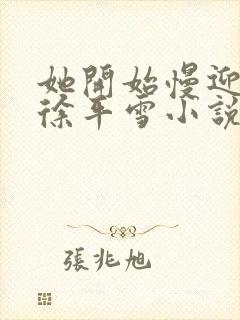 她開始慢迎
徐平雪小說
張兆旭